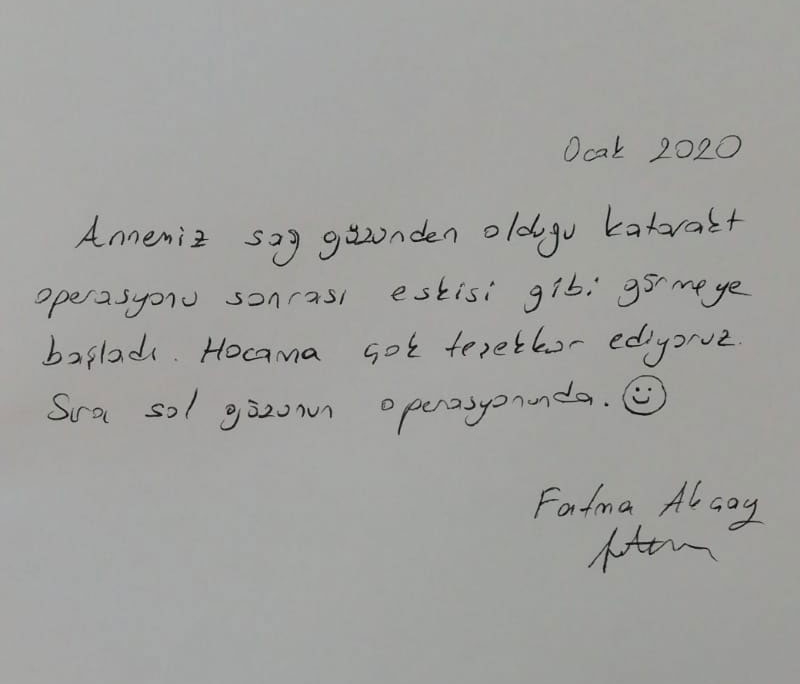 Ocak 2020
Annemiz sağ gözünden olduğu katarakt
operasyonu sonrası eskisi gibi görmeye
başladı. Hocama çok teşekkür ediyoruz.
Sıra sol gözünün operasyonunda. ☺
Fatma Akçay